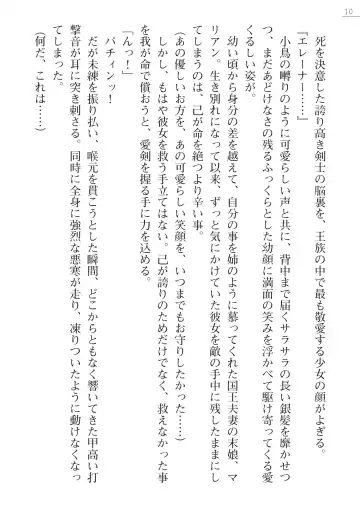 10
死を決意した誇り高き剣士の脳裏を、王族の中で最も敬愛する少女の顔がよぎる。
『エレーナー……』
小鳥の囀りのように可愛らしい声と共に、背中まで届くサラサラの長い銀髪を靡かせつ
つ、まだあどけなさの残るふっくらとした幼顔に満面の笑みを浮かべて駆け寄ってくる愛
くるしい姿が。
幼い頃から身分の差を越えて、自分の事を姉のように慕ってくれた国王夫妻の末娘、マ
リアン。生き別れになって以来、ずっと気にかけていた彼女を敵の手中に残したままにし
てしまうのは、己が命を絶つより辛い事。
(あの優しいお方を、あの可愛らしい笑顔を、いつまでもお守りしたかった……)
だが、もはや彼女を救う手立てはない。己が誇りのためだけでなく、救えなかった事
を我が命で償おうと、愛剣を握る手に力を込める。
「んっ！」
バチィンッ！
だが未練を振り払い、喉元を貫こうとした瞬間、どこからともなく響いてきた甲高い打
撃音が耳に突き刺さる。同時に全身に強烈な悪寒が走り、凍りついたように動けなくなっ
てしまった。
(何だ、これは……)